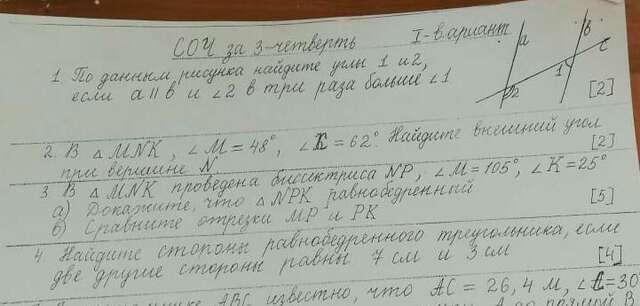 СОЧ за 3-четверть I-вариант
1. По данным рисунка найдите углы 1 и 2,
если a || b и ∠2 в три раза больше ∠1
a
b
c
1
2
[2]
2. В △ MNK, ∠M = 48°, ∠K = 62°. Найдите внешний угол
при вершине N [2]
3 В △ MNK проведена биссектриса NP, ∠M = 105°, ∠K = 25°
а) Докажите, что △ NPK равнобедренный
б) Сравните отрезки MP и PK [5]
4. Найдите стороны равнобедренного треугольника, если
две другие стороны равны 7 см и 3 см [4]
ABC известно, что AC = 26,4 м, ∠C=30